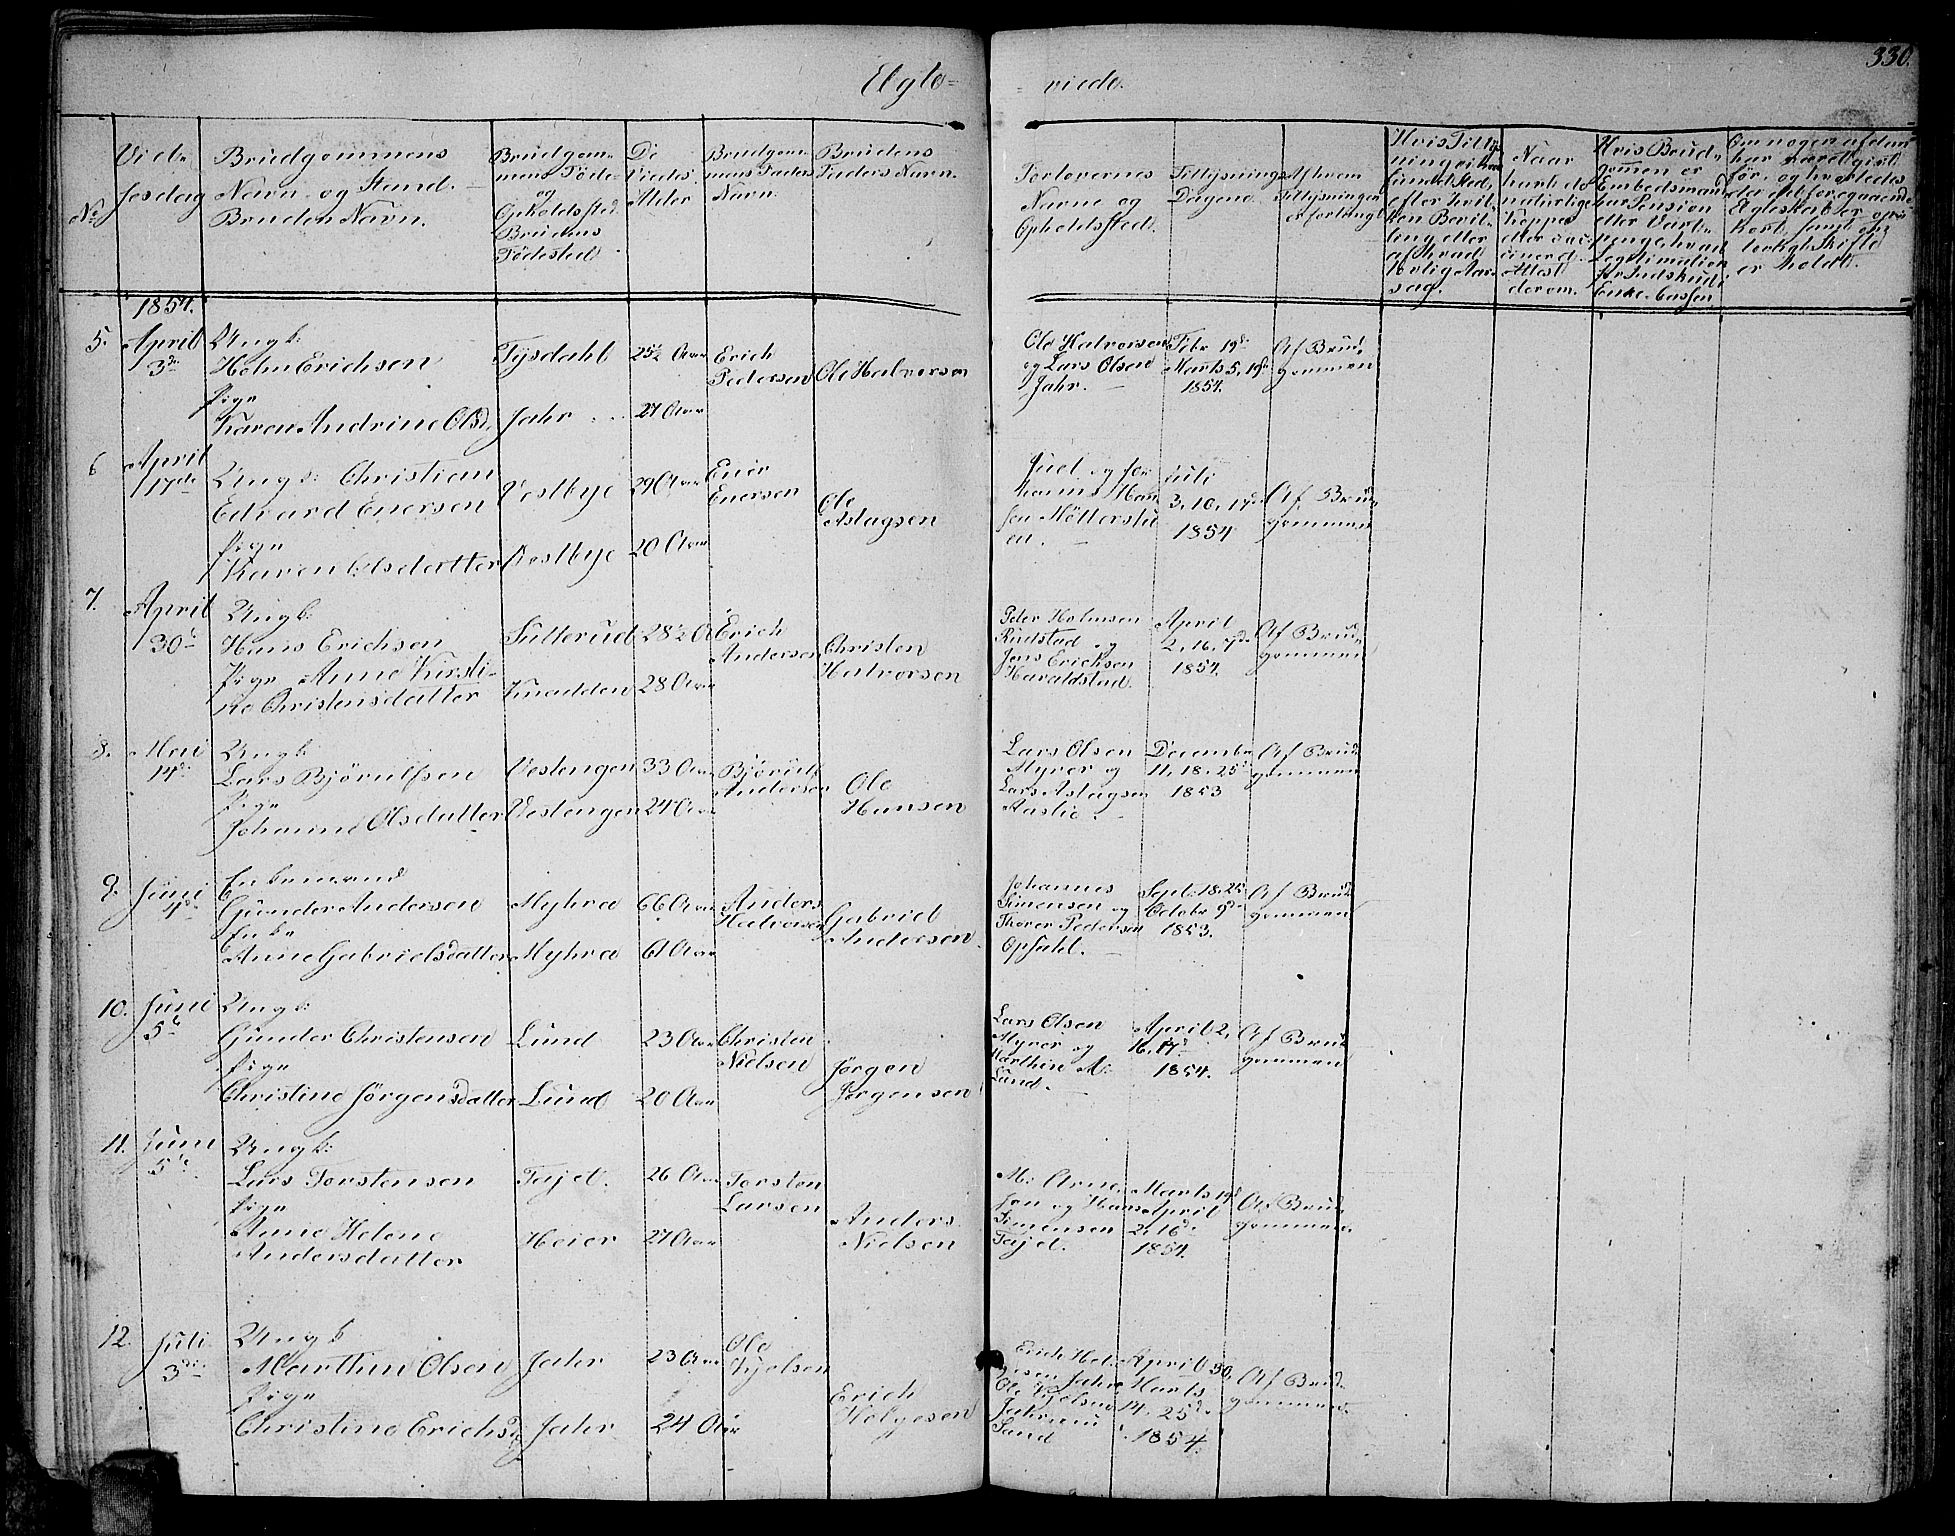 330.
Egte=
= viede.
No
Viel-
sesdag
Brudgommens
Navn og Stand.
Bruden Navn.
Brudgom-
mens Føde
og
Opholdssted
Brudens
Fødested
De
Viedes
Alder
Brudgom-
mens Faders
Navn.
Brudens
Faders Navn.
Forlovernes
Navne og
Opholdssted.
Tillysnings
Dagene.
Af hvem
Tillysningen
er forlangt
Naar
havt de
naturlige
Kopper
eller vac-
cinered.
Attest
derom.
Hvis Brud-
gommen er
Embedsmand
har Pension
eller Vart-
penge hvad
Legitimation
for Indskud i
Enke-Cassen
1854.
5.
April
3die
Ungk:
Holm Erichsen
Pige
Karen Andrine Olsd.
Tysdahl
Jahr
25½ Aar
27 Aar
Erich
Pedersen
Ole Halvorsen
Ole Halvorsen
og Lars Olsen
Jahr.
Febr 19de
Marts 5, 19de
1854.
Af Brud-
gommen
6
April
17de
Ungk: Christian
Edvard Enersen
Pige
Karen Olsdatter
Vestbye
Vestbye
29 Aar
20 Aar
Ener
Enersen
Ole
Aslagsen
Juel og Jo-
hannes Han
sen
Juli
3, 10, 17de
1854
Af Brud-
gommen
7.
April
30te
Ungk:
Hans Erichsen
Pige Anne Kirsti-
ne Christensdatter
Sutterud
Knadden
28½ A
28 Aar
Erich
Andersen
Christen
Halvorsen
Peter Holmsen
Rudstad og
Jens Erichsen
Haraldstad.
April
2, 16, 17de
1854.
Af Brud-
gommen
8.
Mai
14de
Ungk:
Lars Bjørulfsen
Pige
Johanne Olsdatter
Vestengen
Vestengen
33 Aar
24 Aar
Bjørulf
Andersen
Ole
Hansen
Lars Olsen
Myrer og
Lars Aslagsen
Aaslie.
Decembr
11, 18, 25de
1853
Af Brud-
gommen
9.
Juni
4de
Enkemand
Gunder Andersen
Enke
Anne Gabrielsdatter
Myhra
Myhra
66 Aar
61 Aar
Anders
Halvorsen
Gabriel
Andersen
Johannes
Simensen og
Thorer Pedersen
Opsahl.
Sept. 18, 25
Octobr 9de
1853.
Af Brud-
gommen
10.
Juni
5te
Ungk:
Gunder Christensen
Pige
Christine Jørgensdatter
Lund
Lund
23 Aar
20 Aar
Christen
Nielsen
Jørgen
Jørgensen
Lars Olsen
Myrer og
Marthin A:
Lund.
April 2,
16, 17de
1854.
Af Brud-
gommen
11.
Juni
5te
Ungk:
Lars Torstensen
Pige
Anne Helene
Andersdatter
Tajet.
Heier
26 Aar
27 Aar
Torsten
Larsen
Anders
Nielsen
M: Arne-
sen og Hans
Simensen
Tajet.
Marts 19de
April
2, 16de
1854.
Af Brud-
gommen.
12.
Juli
3die
Ungk
Marthin Olsen
Pige
Christine Erichsd.
Jahr
Jahr
23 Aar
24 Aar
Ole
Kjelsen
Erich
Helgesen
Erich Hel-
gesen Jahr
Ole Kjelsen
Sand
April 30,
Marts
14, 25de
1854.
Af Brud-
gommen